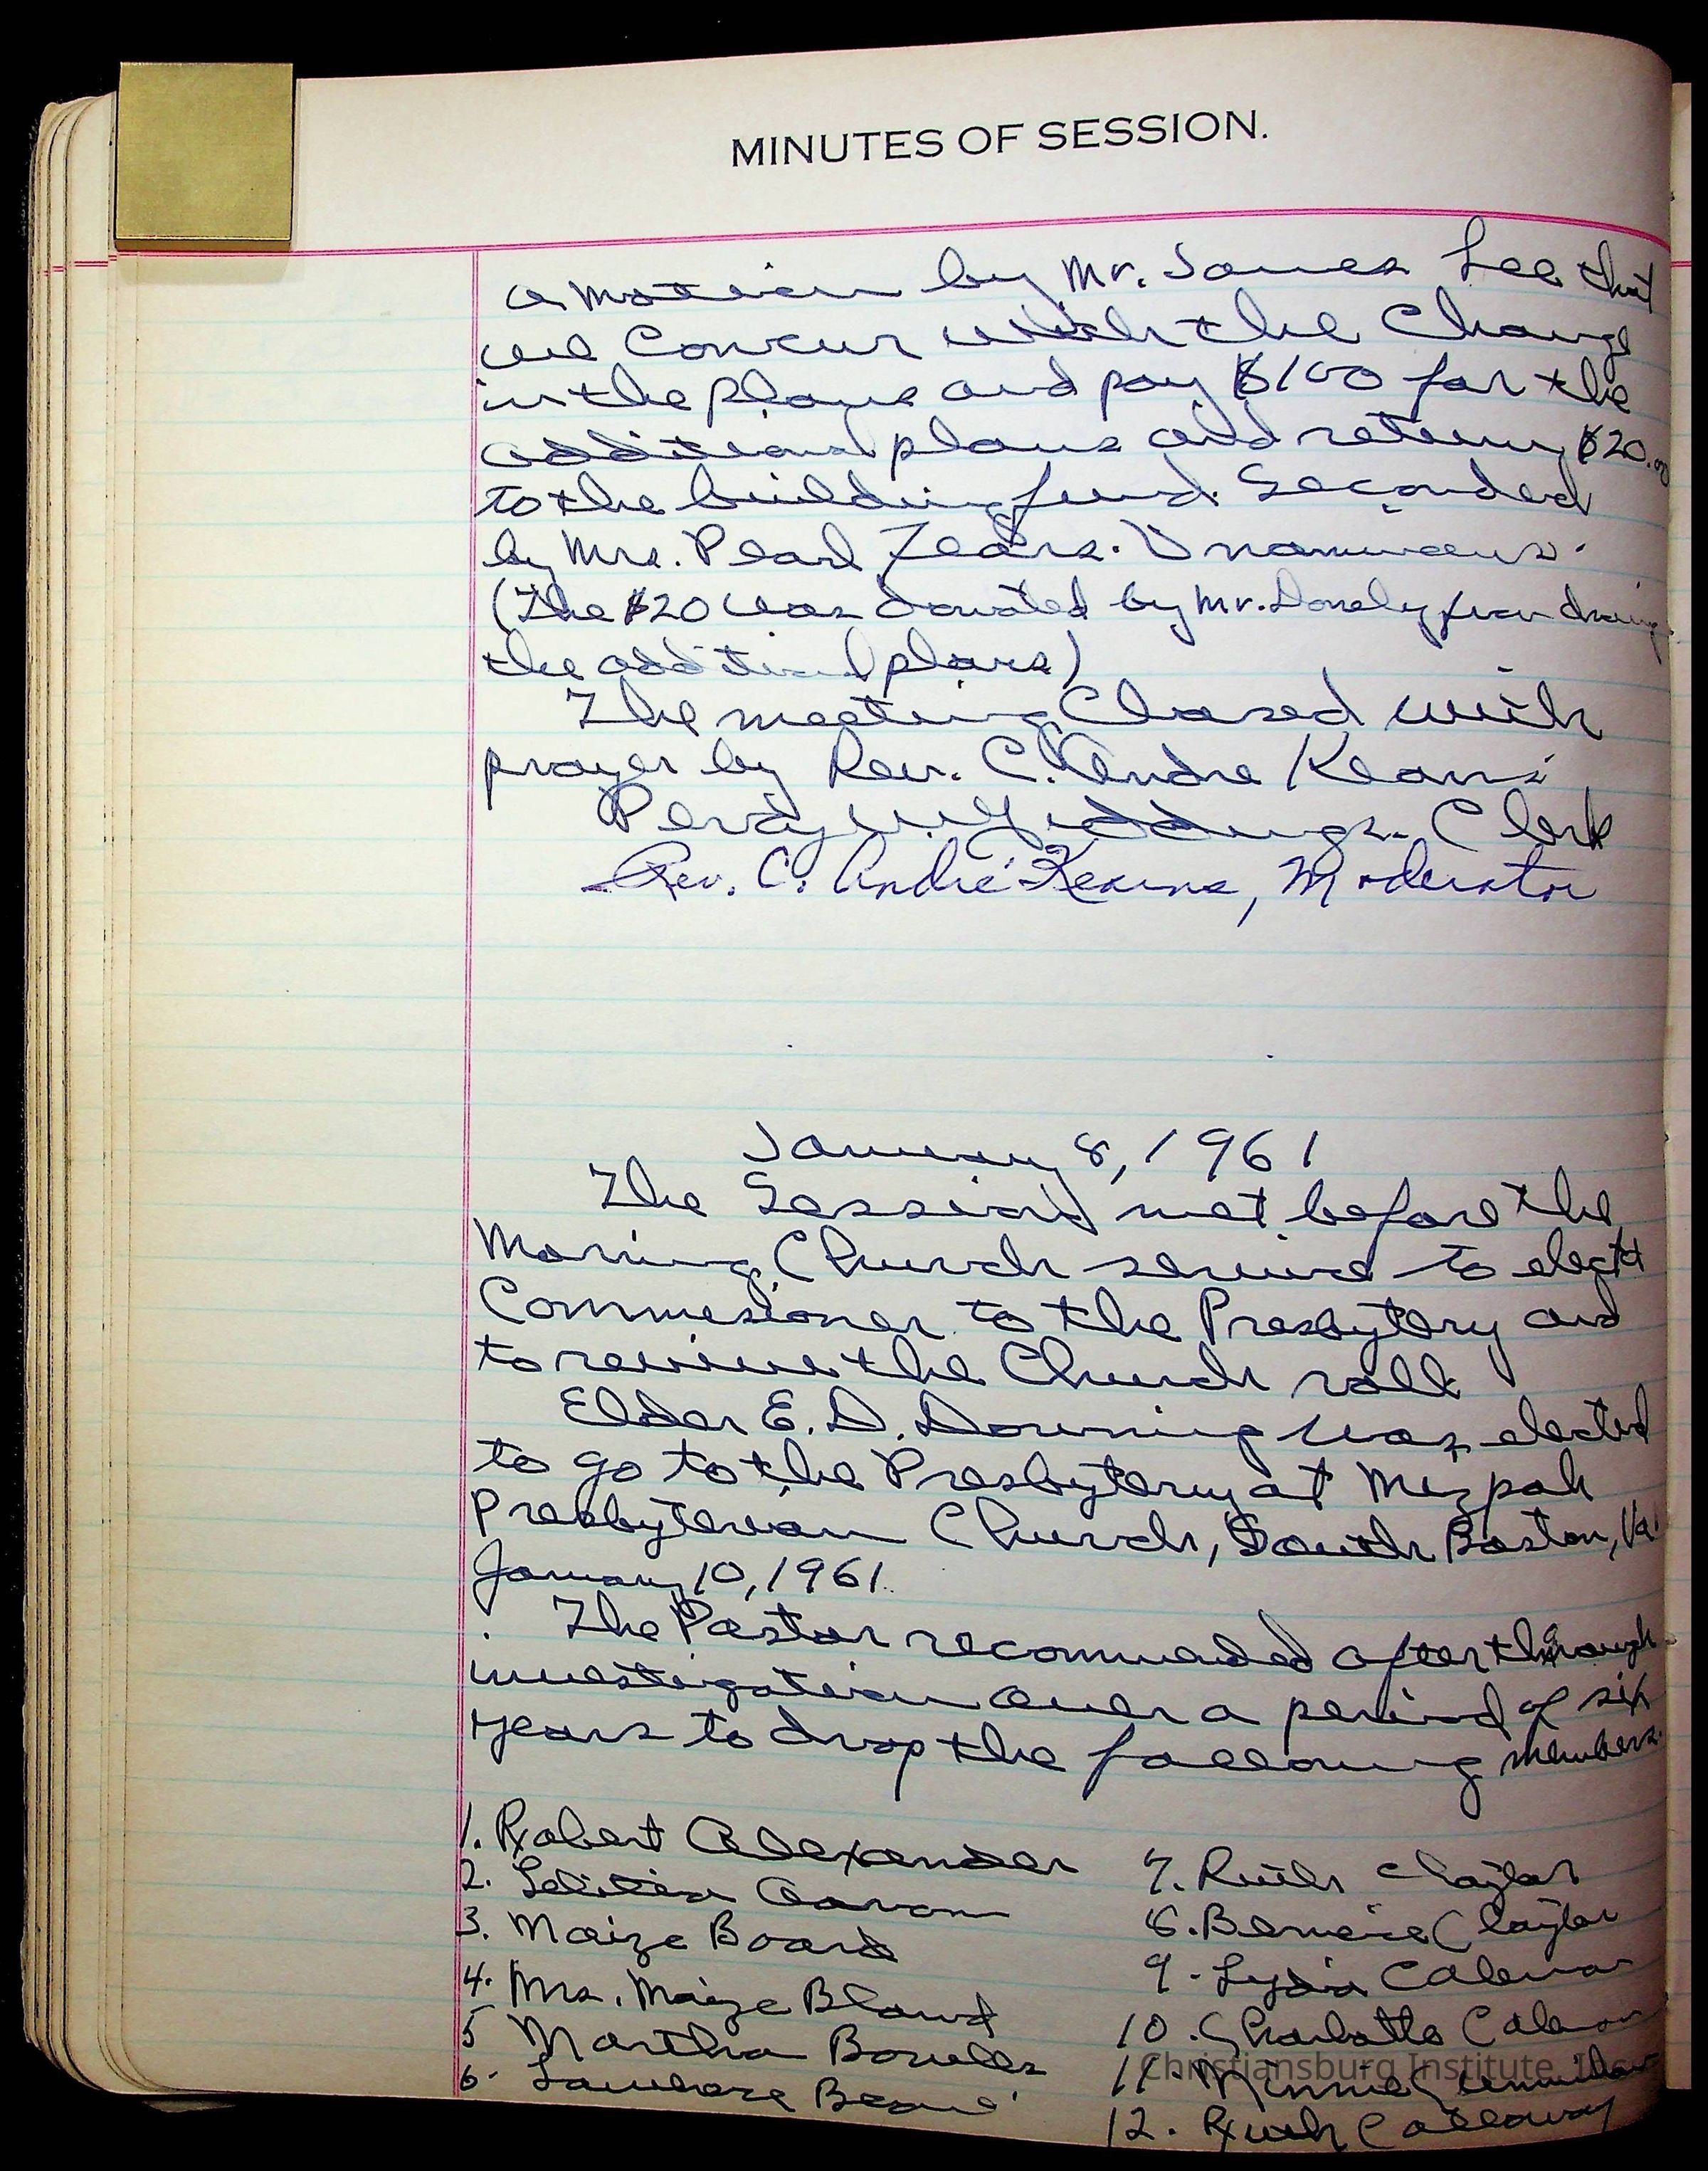 MINUTES OF SESSION.
a motion by Mr. James Lee that
we Concur with the Change
in the plans and pay $100 for the
additional plans and return $20.00
to the building fund. Seconded
by Mrs. Pearl Zears. Unanimous.
(The $20 was donated by Mr. Donely from drawing
the additional plans)
The meeting Closed with
prayer by Rev. C. Andre Kearns
Percy W. Giddings. Clerk
Rev. C. André Kearns, Moderator
January 8, 1961
The Session met before the
Morning Church service to elect
Commesioner to the Presbytery and
to review the Church roll
Elder E. D. Downing was elected
to go to the Presbytery at Mizpah
Presbyterian Church, South Boston, Va.
January 10, 1961.
The Pastor recommended after through
investigation over a period of six
years to drop the following members.
1. Robert Alexander
2. Letitia
3. Maize Board
4. Mrs. Maize Blount
5 Martha Bowles
6. Lawrence
7. Ruth Claytor
8. Berneice Claytor
9. Lydia Coleman
10. Charlotte Coleman
11. Minnie
12. Ruth Calloway
Christiansburg Institute, Inc.